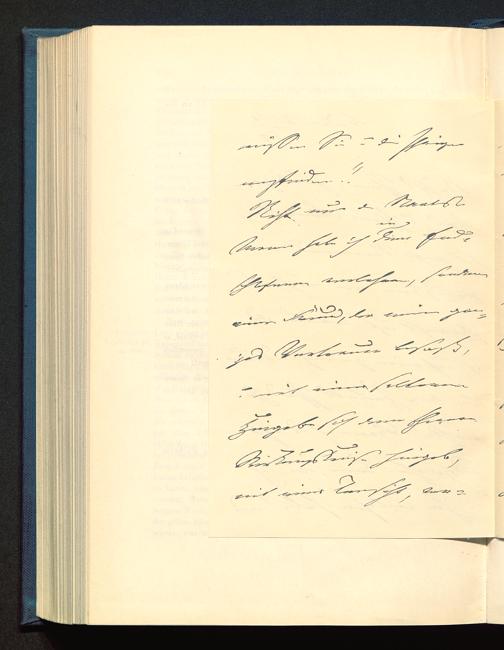 müssen Sie u die Ihrigen
empfinden!!
Nicht nur den Staats
mann habe ich in dem
verloren, sondern
einen Freund, der mein gan-
zes Vertrauen besaß,
u mit einer seltenen
Hingebung sich dem
Wirkungskreise hingab,
mit einer Umsicht,